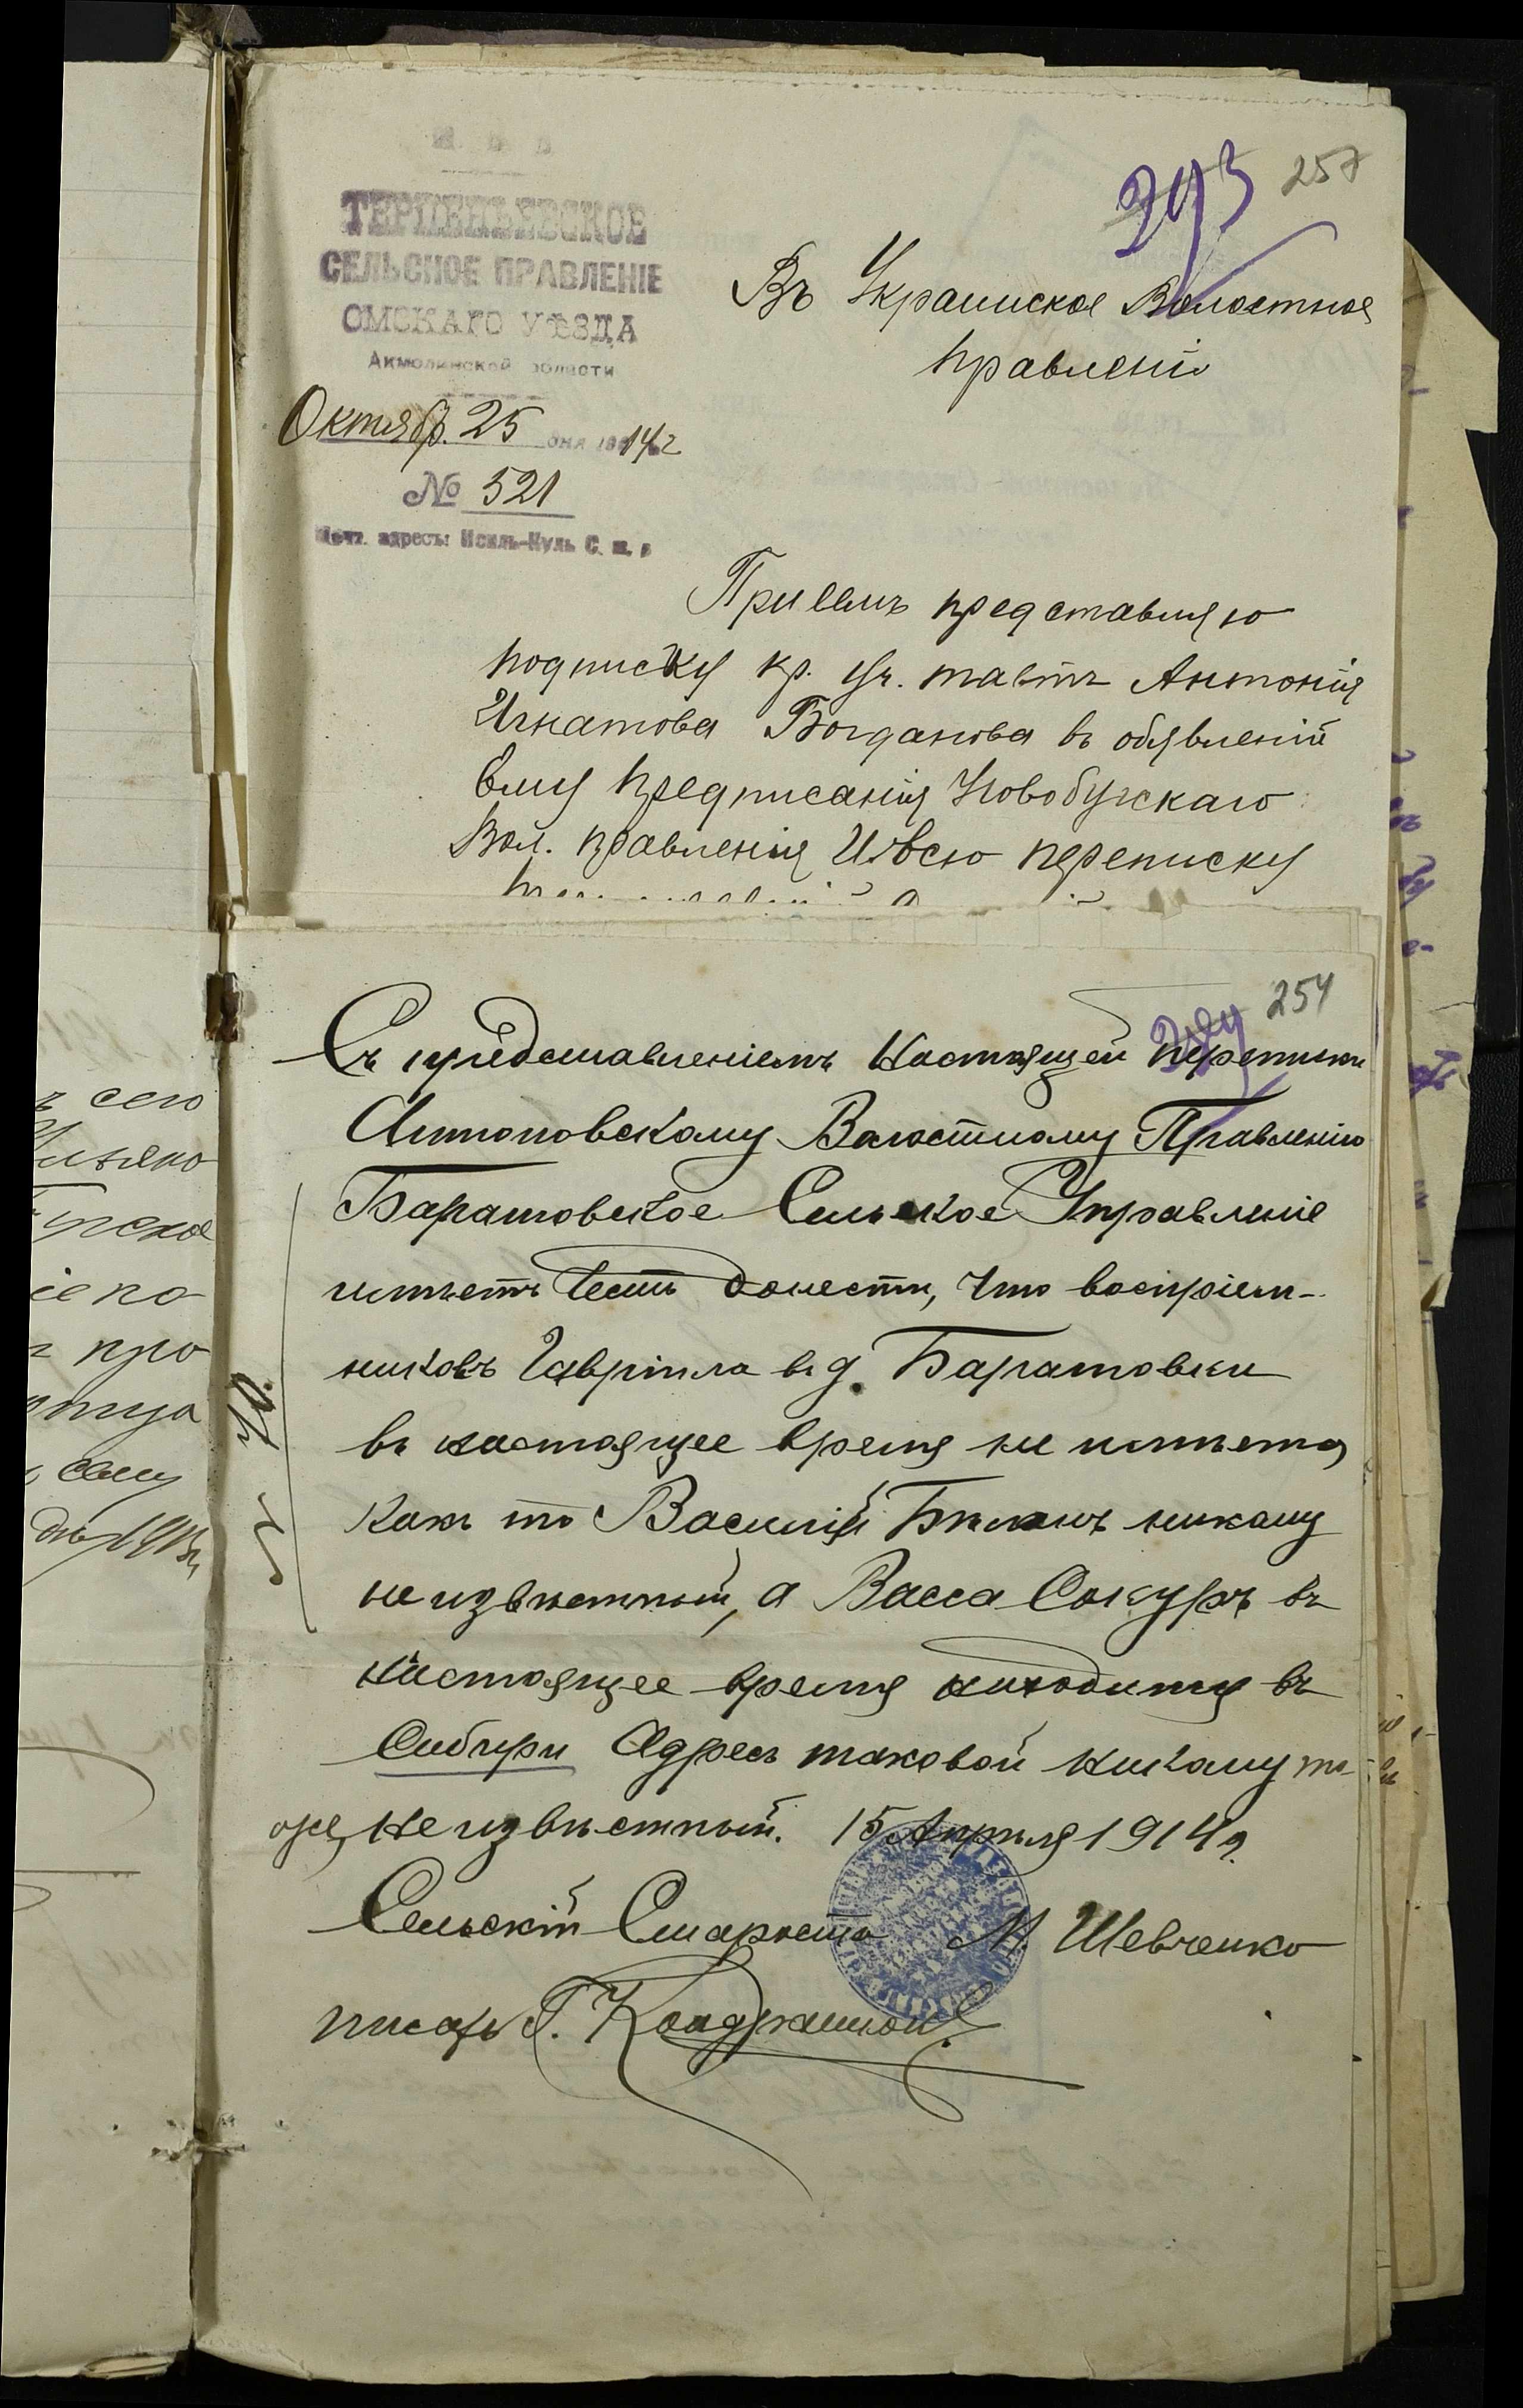 293 257
ТЕРПЕНЬЕВСКОЕ
СЕЛЬСКОЕ ПРАВЛЕНІЕ
ОМСКАГО УѢЗДА
Акмолинской области
Октябр. 25 дня 1914 г
№ 521
Почт. адресъ: Исиль-Куль С. ж. д.
Въ Украинское Волостное
правленіе
При семъ представляю
подписку кр. уч. Антонія
Игнатова Богданова въ обявленій
Ему предписанія Новобугскаго
Вол. правленія И всю переписку
254
Съ предоставленіемъ настоящей переписки
Антоновскому Волостному Правленію
Баратовское Сельское Управленіе
имѣетъ честь донести, что воспріем-
никовъ Гавріила въ д. Баратовки
въ настоящее время не имѣется
какъ то Василій никому
не извѣстный, а Васса Сокуръ въ
настоящее время находится въ
Сибири Адресъ таковой никому то-
же, не извѣстный. 15 Апрѣля 1914 г.
Сельскій Староста М. Шевченко
писарь Г.
ъ сего
іе по
про
сему